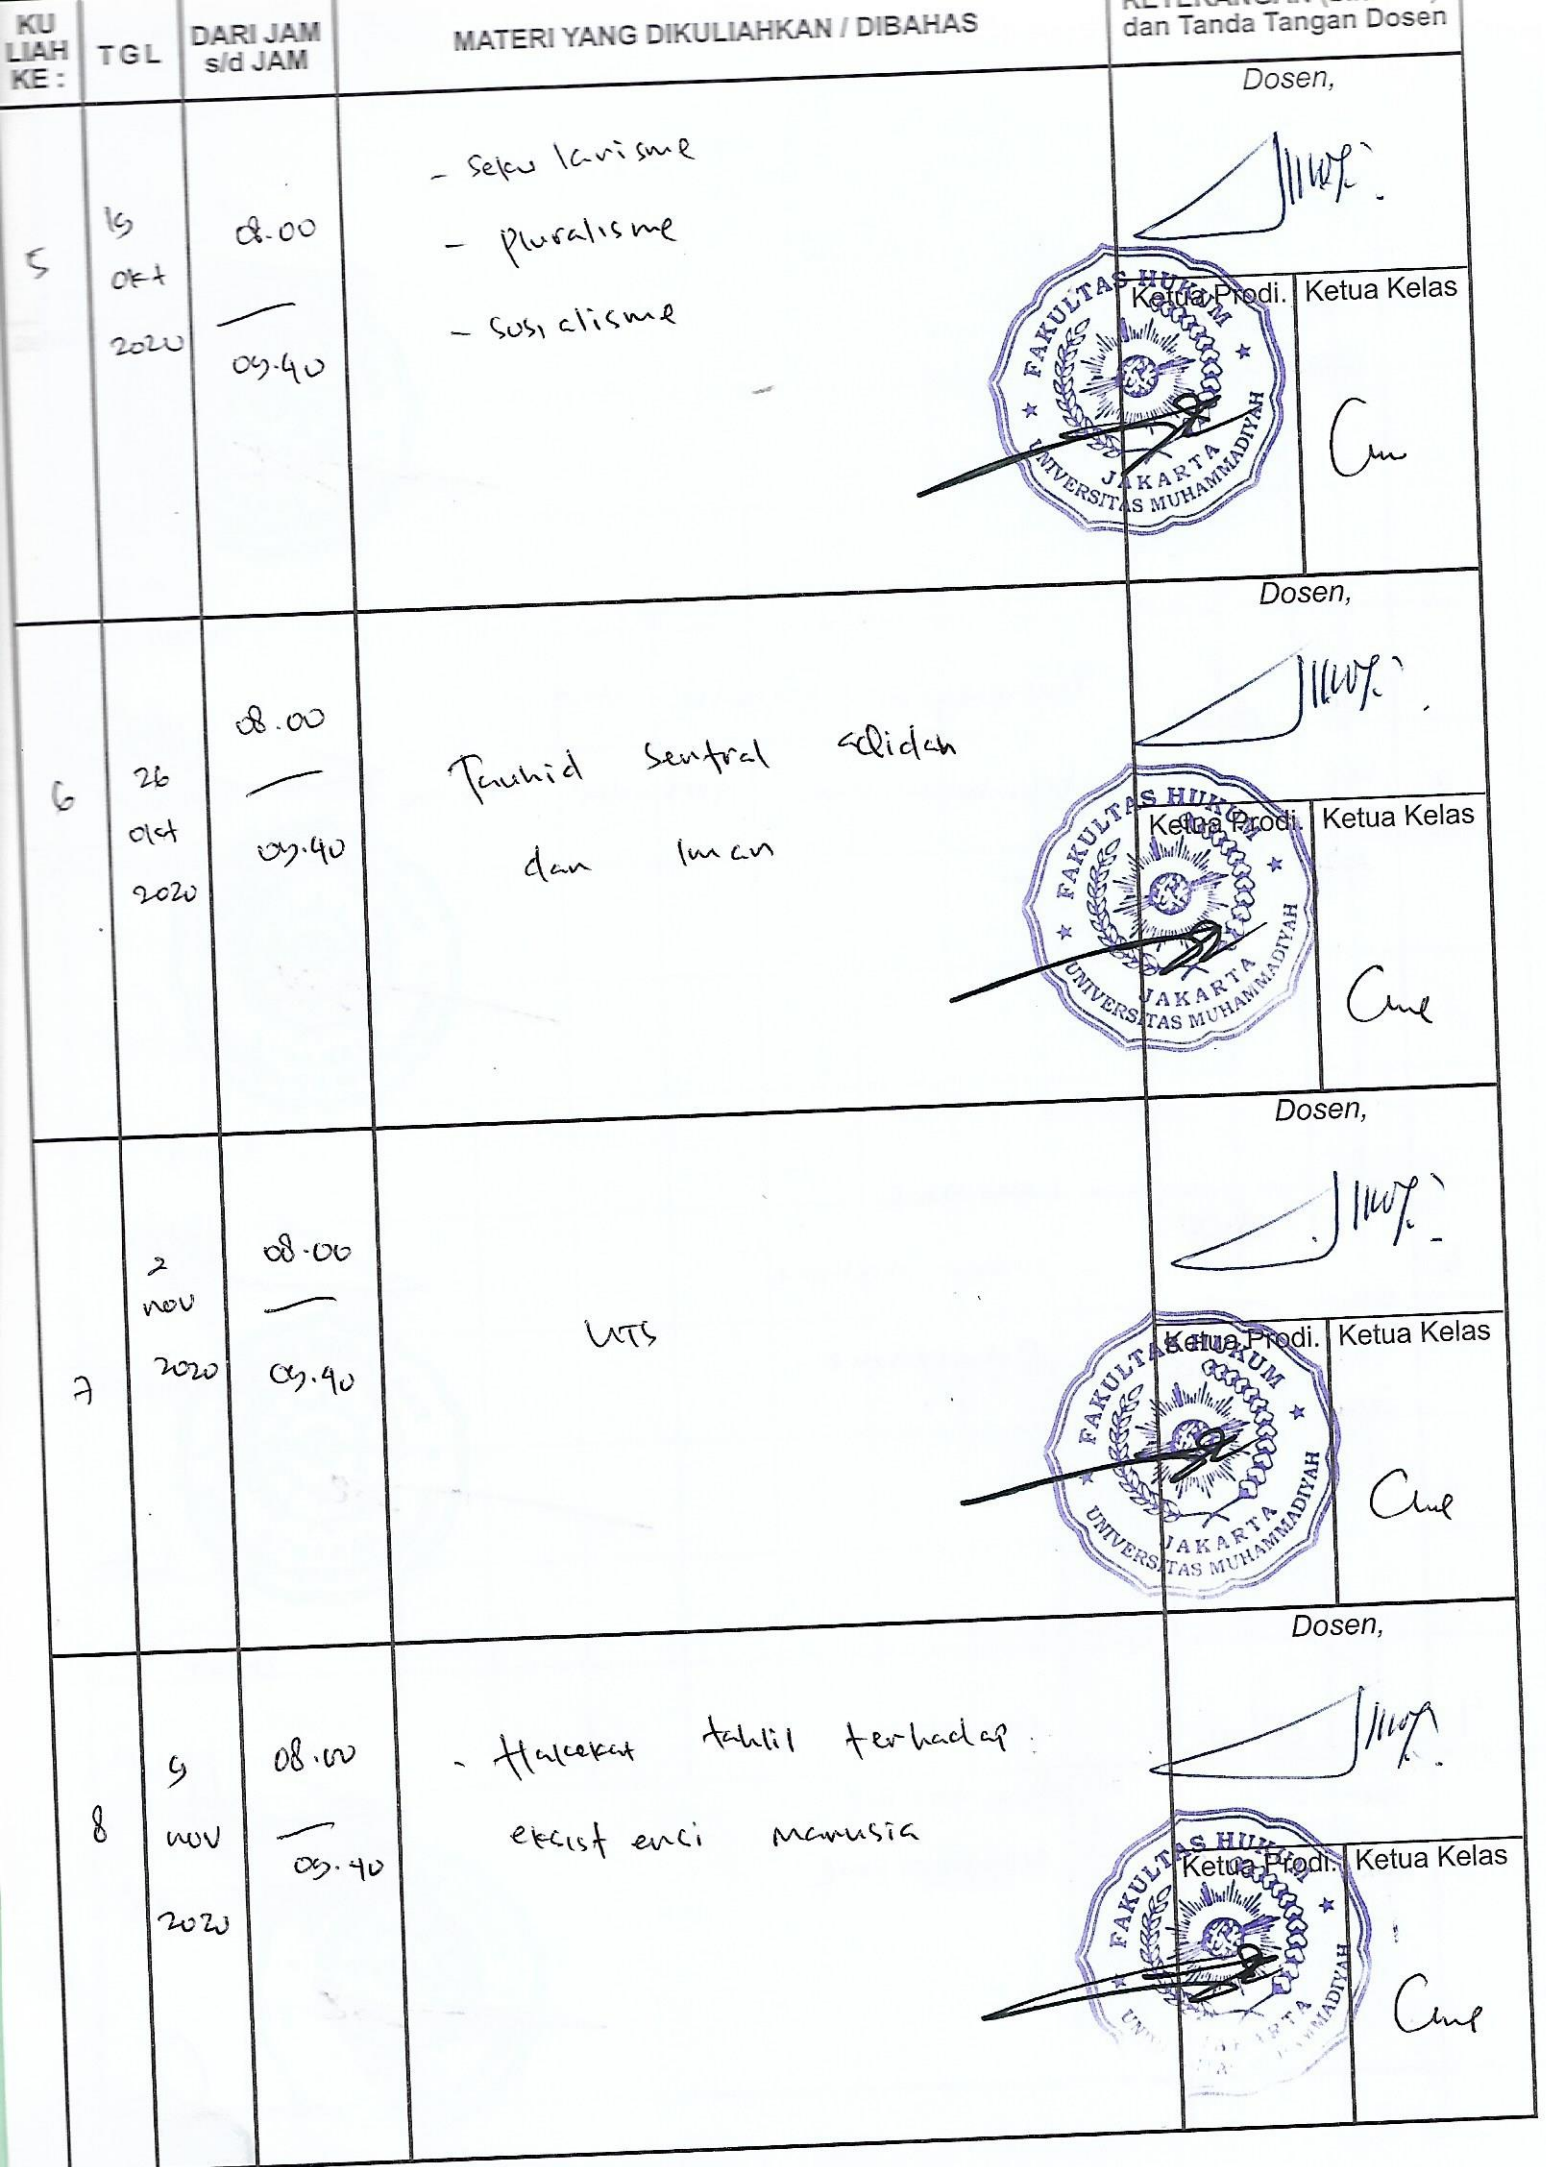 KU
LIAH
KE :
TGL
DARI JAM
s/d JAM
MATERI YANG DIKULIAHKAN / DIBAHAS
dan Tanda Tangan Dosen
5
Okt
2020
08.00
09.40
- Sekularisme
- Pluralisme
- Sosialisme
Dosen,
Ketua Prodi.
Ketua Kelas
FAKULTAS HUKUM
UNIVERSITAS MUHAMMADIYAH
JAKARTA
6
26
Okt
2020
08.00
09.40
Tauhid Sentral aqidah
dan Iman
Dosen,
Ketua Prodi.
Ketua Kelas
FAKULTAS HUKUM
UNIVERSITAS MUHAMMADIYAH
JAKARTA
7
2
nov
2020
08.00
09.40
UTS
Dosen,
Ketua Prodi.
Ketua Kelas
FAKULTAS HUKUM
UNIVERSITAS MUHAMMADIYAH
JAKARTA
8
9
nov
2020
08.00
09.40
- Hakekat tahlil terhadap
eksistensi manusia
Dosen,
Ketua Prodi.
Ketua Kelas
FAKULTAS HUKUM